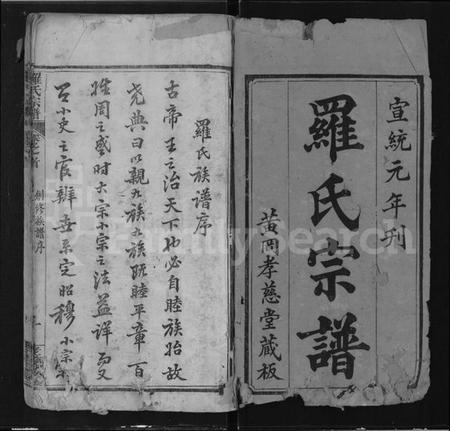 宣統元年刊
羅氏宗譜
黃岡孝慈堂藏板
羅氏族譜序
古帝王之治天下也必自睦族始故
堯典曰以親九族九族既睦平章百
姓周之盛時大宗小宗之法益詳而又
小史之官辨世系定昭穆小宗
羅氏宗譜
創修族譜序
FamilySearch